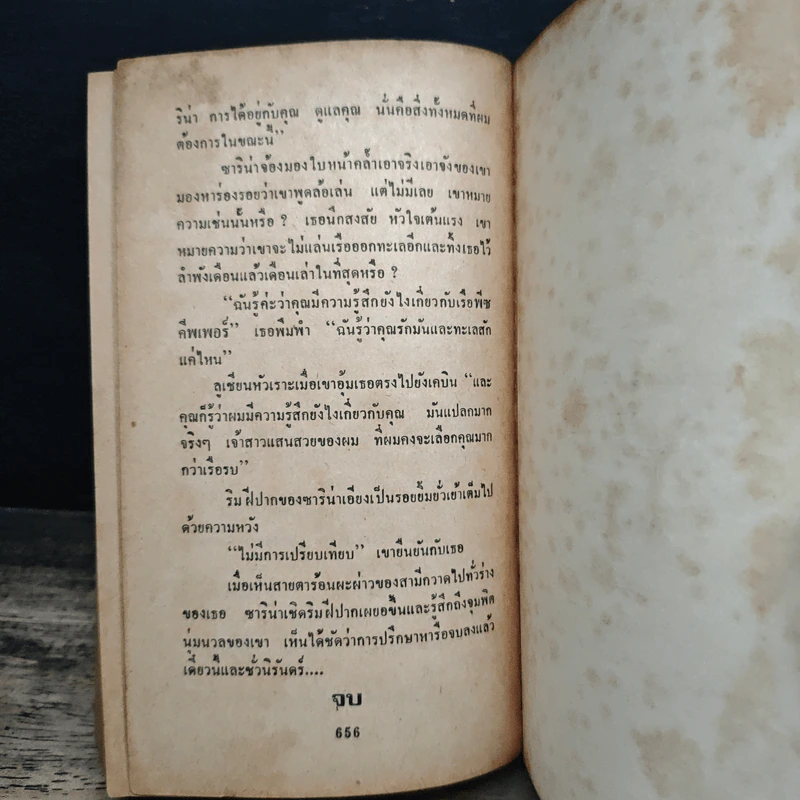 ริน่า การได้อยู่กับคุณ ดูแลคุณ นั่นคือสิ่งทั้งหมดที่ผม
ต้องการในขณะนี้”
ซาริน่าจ้องมองใบหน้าคล้ำเอาจริงเอาจังของเขา
มองหาร่องรอยว่าเขาพูดล้อเล่น แต่ไม่มีเลย เขาหมาย
ความเช่นนั้นหรือ ? เธอนึกสงสัย หัวใจเต้นแรง เขา
หมายความว่าเขาจะไม่แล่นเรือออกทะเลอีกและทิ้งเธอไว้
ลำพังเดือนแล้วเดือนเล่าในที่สุดหรือ ?
“ฉันรู้ค่ะว่าคุณมีความรู้สึกยังไงเกี่ยวกับเรือพีซ
คีพเพอร์” เธอพึมพำ “ฉันรู้ว่าคุณรักมันและทะเลสัก
แค่ไหน”
ลูเชียนหัวเราะเมื่อเขาอุ้มเธอตรงไปยังเคบิน “และ
คุณก็รู้ว่าผมมีความรู้สึกยังไงเกี่ยวกับคุณ มันแปลกมาก
จริงๆ เจ้าสาวแสนสวยของผม ที่ผมคงจะเลือกคุณมาก
กว่าเรือรบ”
ริมฝีปากของซาริน่าเอียงเป็นรอยยิ้มยั่วเย้าเต็มไป
ด้วยความหวัง
“ไม่มีการเปรียบเทียบ” เขายืนยันกับเธอ
เมื่อเห็นสายตาร้อนผะผ่าวของสามีกวาดไปทั่วร่าง
ของเธอ ซาริน่าเชิดริมฝีปากเผยอขึ้นและรู้สึกถึงจุมพิต
นุ่มนวลของเขา เห็นได้ชัดว่าการปรึกษาหารือจบลงแล้ว
เดี๋ยวนี้และชั่วนิรันดร์....
จบ
656